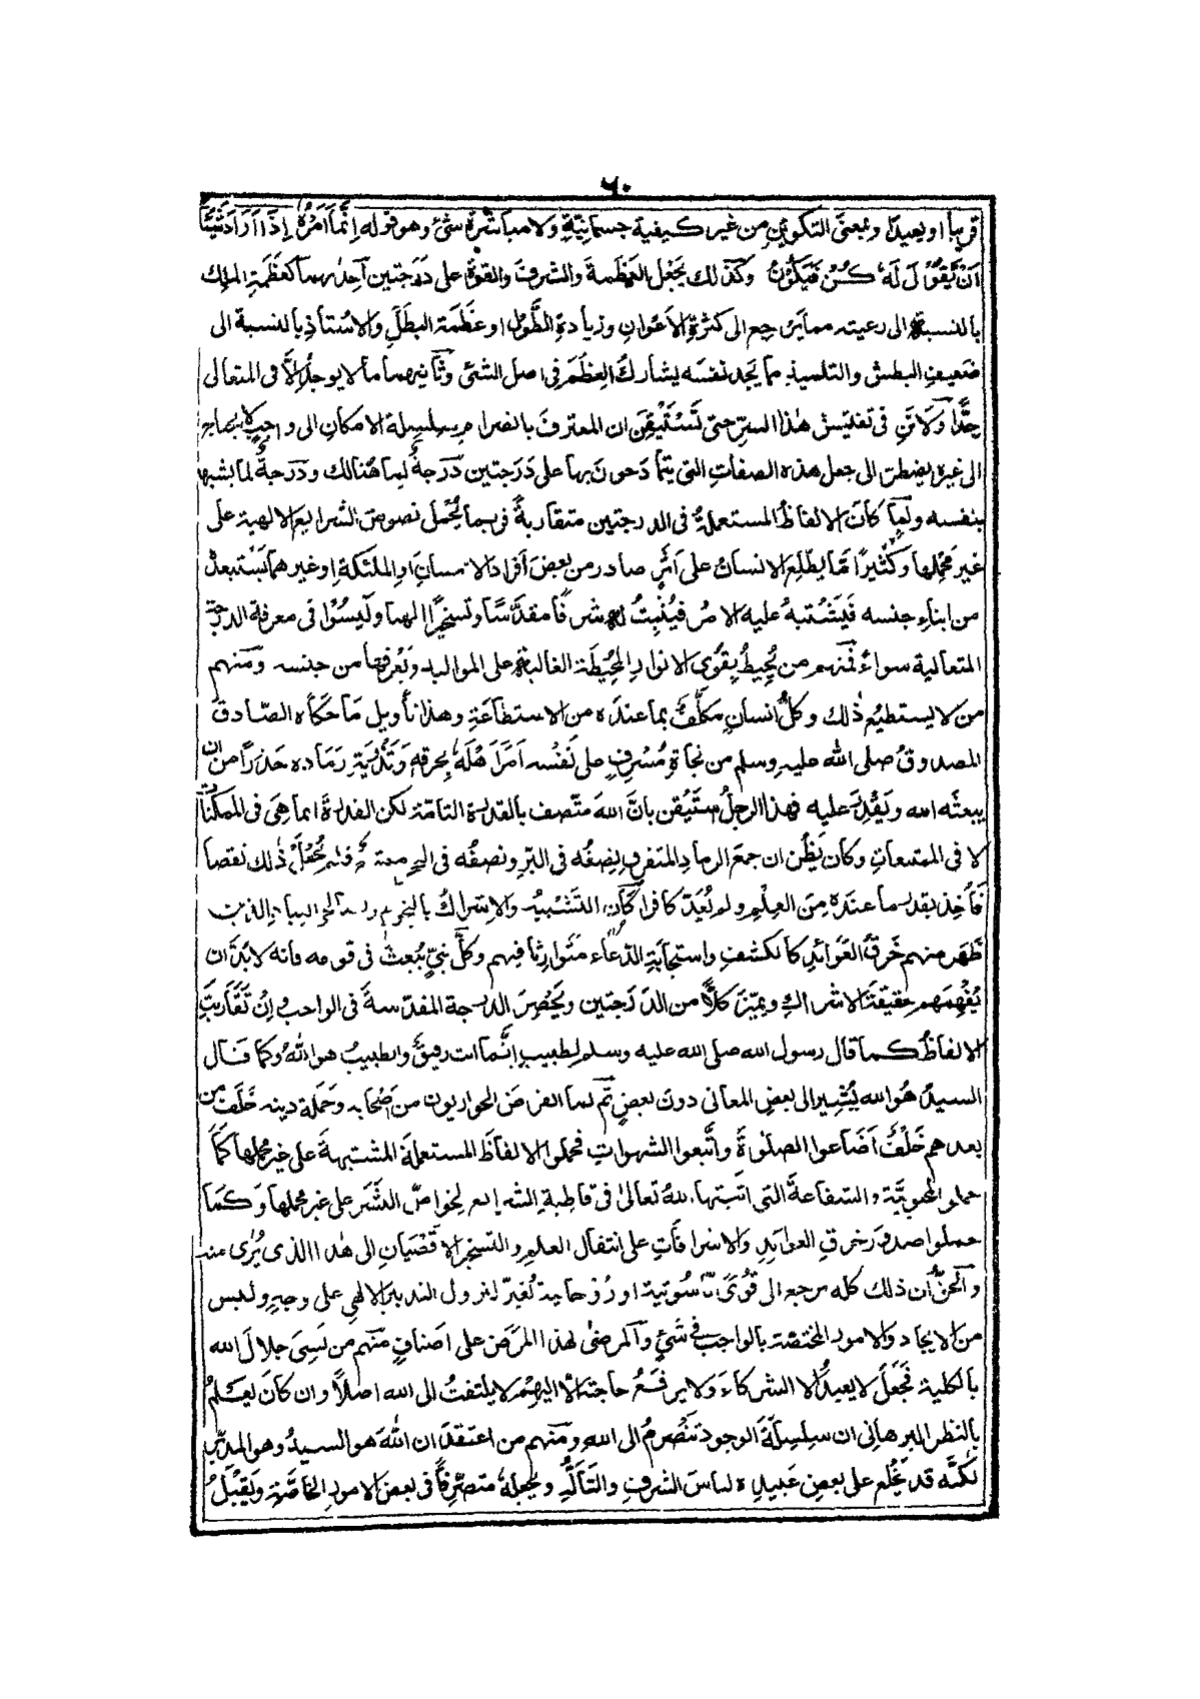 ٦٠
قريبا او بعيدا وبمعنى التكوين من غير كيفية جسمانية ولا مباشرة شئ وهو قوله انما امره اذا اراد شيئا
ان يقول له كن فيكون وكذلك يجعل العظمة والشرف والقوة على درجتين احدٰىهما كعظمة الملك
بالنسبة الى رعيته مما يرجع الى كثرة الاعوان وزيادة الطول او عظمة البطل والاستاذ بالنسبة الى
ضعيف البطش والتلميذ مما يجد نفسه يشارك العظم فى اصل الشئ وثانيهما ما لا يوجد الا فى المتعالى
جدا ولا تن فى تفتيش هذا السر حتى تستيقن ان المعترف بانصرام سلسلة الامكان الى واجب لا يحتاج
الى غيره يضطر الى جعل هذه الصفات التى يتمادحون بها على درجتين درجة لما هنالك ودرجة لما يشبهها
بنفسه ولما كان الالفاظ المستعملة فى الدرجتين متقاربة فربما يُحمل نصوص الشرايع الالهية على
غير محملها وكثيرا ما يطلع الانسان على اثر صادر من بعض افراد الانسان او الملٰئكة او غيرهما يستبعده
من ابناء جنسه فيشتبه عليه الامر فيُثبت له شرفا مقدسا وتسخيرا الهيا وليسوا فى معرفة الدرجة
المتعالية سواء فمنهم من يُحيط بقوى الانوار المحيطة الغالبة على المواليد ويعرفها من جنسه ومنهم
من لا يستطيع ذلك وكل انسان مكلف بما عنده من الاستطاعة وهذا تأويل ما حكاه الصادق
المصدوق صلى الله عليه وسلم من نجاة مُسْرف على نفسه امر اهله بحرقه وتذرية رماده حذرا من ان
يبعثه الله ويقدر عليه فهذا الرجل استيقن بان الله متصف بالقدرة التامة لكن القدرة انما هى فى الممكنات
لا فى الممتنعات وكان يظن ان جمع الرماد المتفرق نصفه فى البر ونصفه فى البحر ممتنع فلم يُجعل ذلك نقصا
فاُخذ بقدر ما عنده من العلم ولم يُعد كافرا كان التشبيه والاشراك بالنجوم وبصالحى العباد الذين
ظهر منهم خرق العوائد كالكشف واستجابة الدعاء متوارثا فيهم وكل نبى يُبعث فى قومه فانه لا بد ان
يُفهمهم حقيقة الاشراك ويميّز كلا من الدرجتين ويَحصر الدرجة المقدسة فى الواجب وان تقاربت
الالفاظ كما قال رسول الله صلى الله عليه وسلم لطبيب انما انت رفيق والطبيب هو الله وكما قال
السيد هو الله يُشير الى بعض المعانى دون بعض ثم لما انقرض الحواريون من اصحابه وحملة دينه خلف من
بعدهم خلف اضاعوا الصلوة واتبعوا الشهوات فحملوا الالفاظ المستعملة المشتبهة على غير محملها كما
حملوا المحبوبية والشفاعة التى اثبتها الله تعالى فى قاطبة الشرايع لخواص البشر على غير محملها وكما
حملوا صدور خرق العوائد والاشراقات على انتقال العلم والتسخير الاقصيان الى هذا الذى يُرٰى منه
والحق ان ذلك كله يرجع الى قوى ناسوتية او روحانية تُعد لنزول التدبير الالهى على وجه وليس
من الايجاد والامور المختصة بالواجب فى شئ والمرضى لهذا المرض على اصناف منهم من نسى جلال الله
بالكلية فجعل لا يعبد الا الشركاء ولا يرفع حاجته الا اليهم لا يلتفت الى الله اصلا وان كان يعلم
بالنظر البرهانى ان سلسلة الوجود تنصرم الى الله ومنهم من اعتقد ان الله هو السيد وهو المدبر
لكنه قد يخلع على بعض عبيده لباس الشرف والتأله ويجعله متصرفا فى بعض الامور الخاصة ويقبل